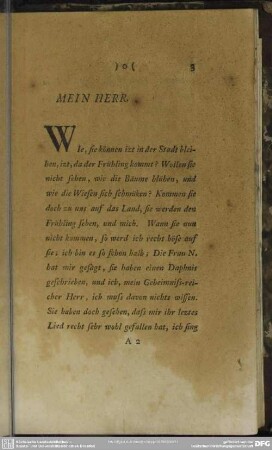 ) o (
3
MEIN HERR.
Wie, sie können izt in der Stadt blei-
ben, izt, da der Frühling kommt? Wollen sie
nicht sehen, wie die Bäume blühen, und
wie die Wiesen sich schmüken? Kommen sie
doch zu uns auf das Land, sie werden den
Frühling sehen, und mich. Wann sie nun
nicht kommen, so werd ich recht böse auf
sie; ich bin es so schon halb; Die Frau N.
hat mir gesagt, sie haben einen Daphnis
geschrieben, und ich, mein Geheimniss-rei-
cher Herr, ich muss davon nichts wissen.
Sie haben doch gesehen, dass mir ihr leztes
Lied recht sehr wohl gefallen hat, ich sing
A 2